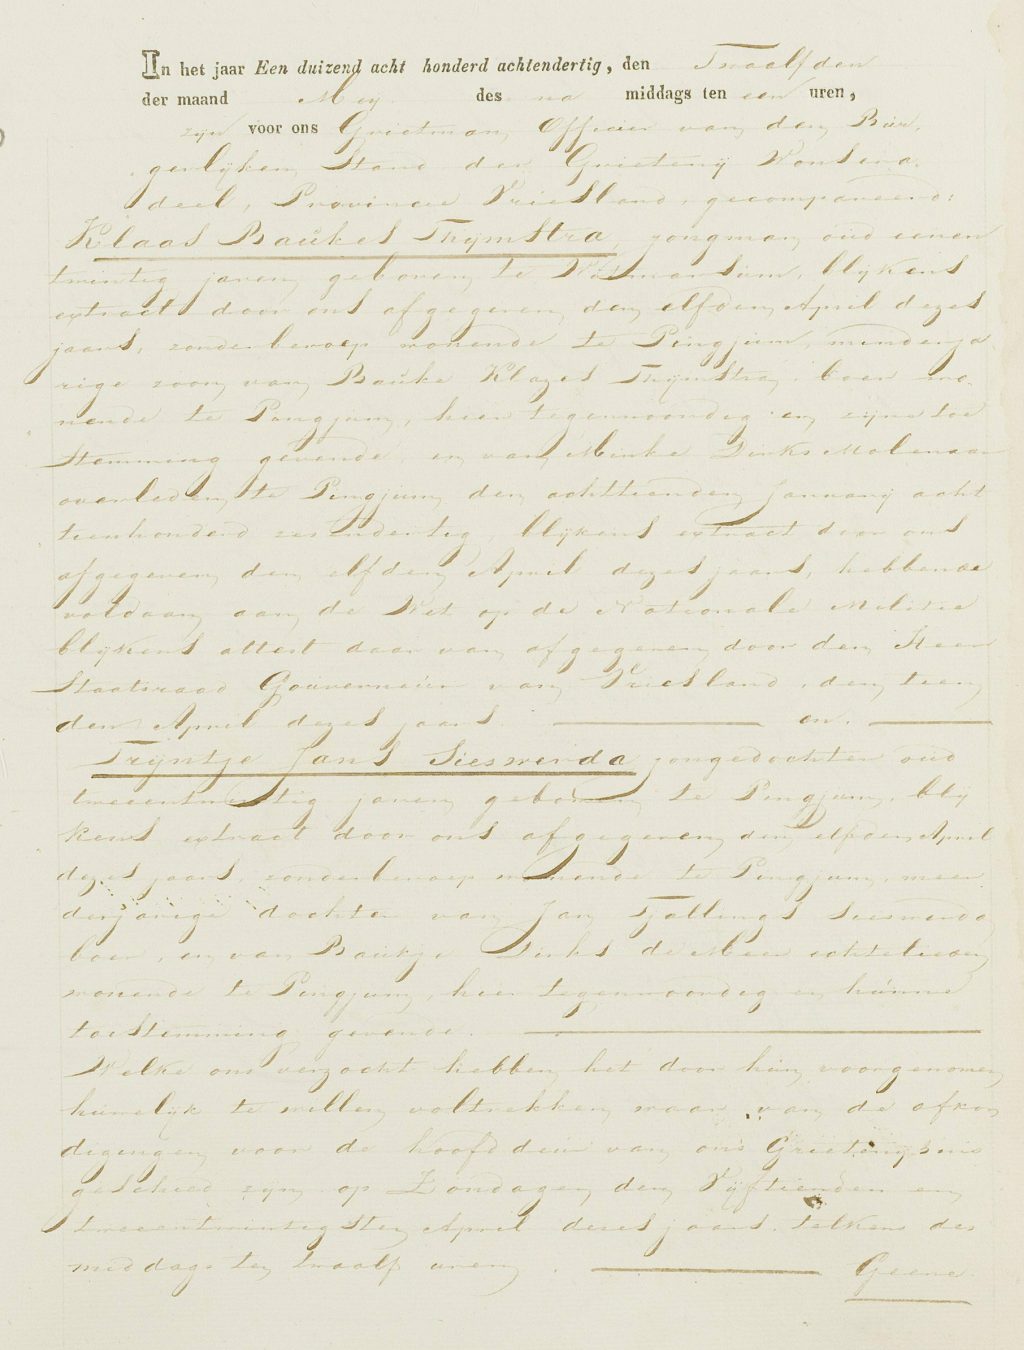 In het jaar Een duizend acht honderd achtendertig, den Twaalfden
der maand Mey des na middags ten een uren,
zijn voor ons Grietman, Officier van den Bur,
gerlijken Stand der Grietenij Wonsera,
deel, Provincie Vriesland, gecompareerd:
Klaas Baukes Thijmstra, jongman, oud eenen
twintig jaren, geboren te Witmarsum, blijkens
extract door ons afgegeven den elfden April dezes
jaars, zonder beroep wonende te Pingjum, minderja,
rige zoon van Bauke Klazes Thijmstra, boer wo,
nende te Pingjum, hier tegenwoordig en zijne toe
stemming gevende, en van Minke Dirks Molenaar
overleden te Pingjum den achttienden January acht
tienhonderd zesendertig, blijkens extract door ons
afgegeven den elfden April dezes jaars, hebbende
voldaan aan de Wet op de Nationale Militie
blijkens attest daar van afgegeven door den Heer
Staatsraad Gouverneur van Vriesland, den tien
den April dezes jaars en
Trijntje Jans Sieswerda jongedochter oud
tweeentwintig jaren geboren te Pingjum, blij
kens extract door ons afgegeven den elfden April
dezes jaars, zonder beroep wonende te Pingjum, min
derjarige dochter van Jan Tjallings Sieswerda
boer, en van Baukje Dirks de Meer echtelieden
wonende te Pingjum, hier tegenwoordig en hunne
toestemming gevende.
Welke ons verzocht hebben het door hun voorgenomen
huwelijk te willen voltrekken waar van de afkon
digingen voor de hoofddeur van ons Grietenijhuis
geschied zijn op Zondagen den Vijftienden en
tweeentwintigsten April dezes jaars, telkens des
middags ten twaalf uren. Geene